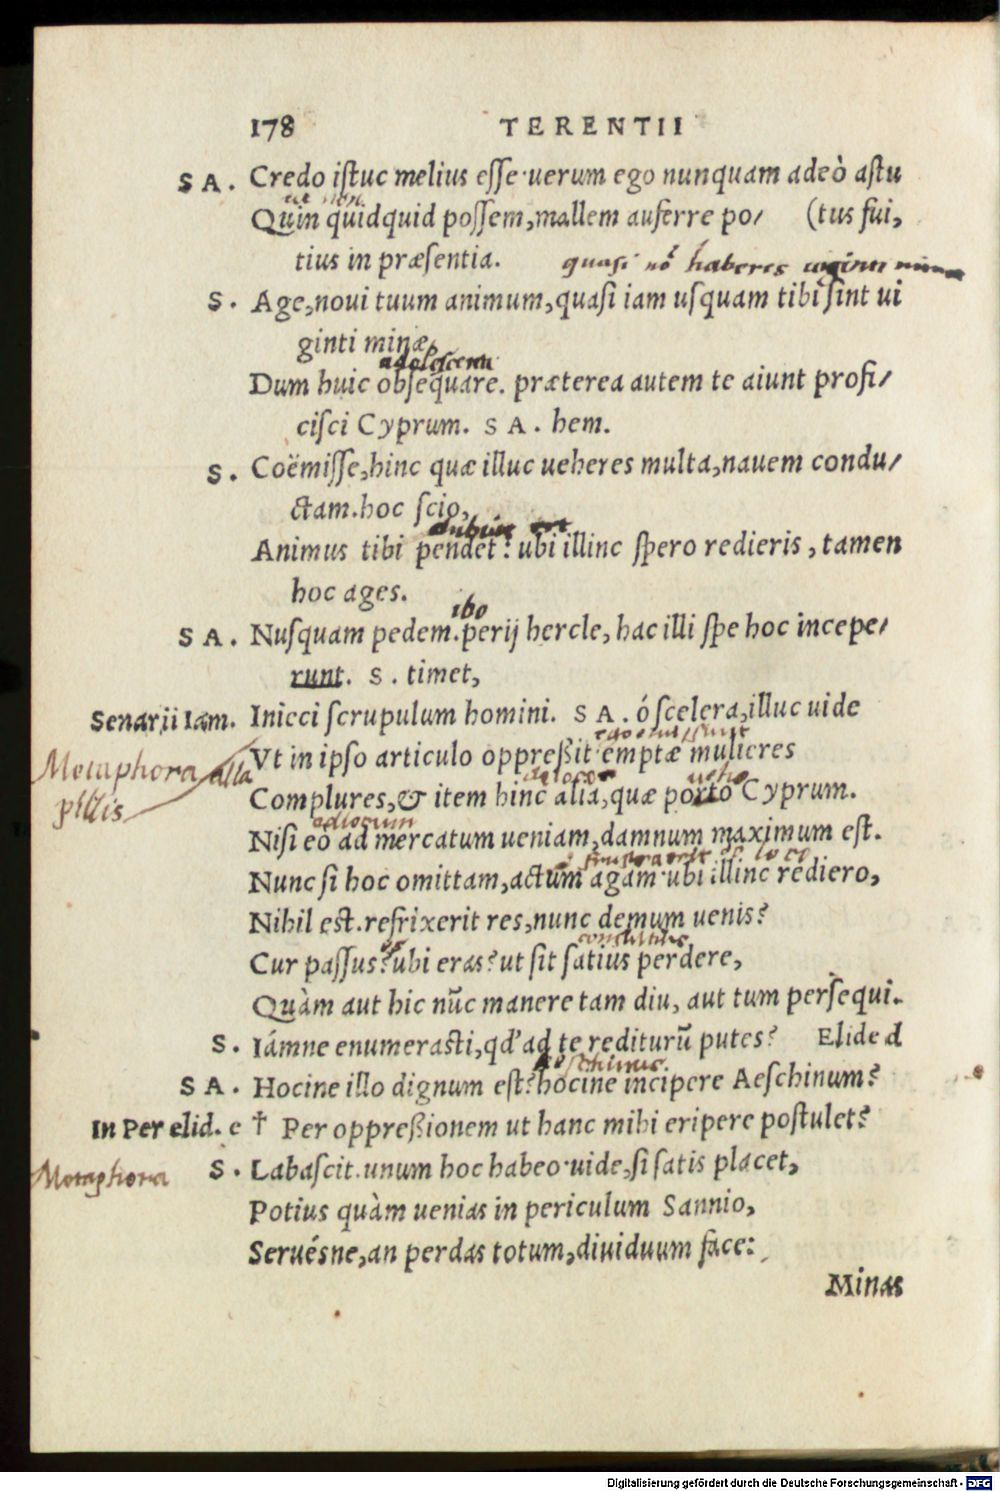 178 TERENTII
SA. Credo istuc melius esse·uerum ego nunquam adeò astu
ut non
Quin quidquid possem,mallem auferre po/ (tus fui,
tius in præsentia.
quasi nō haberes
S. Age,noui tuum animum,quasi iam usquam tibi sint ui
ginti minæ,
Dum huic obsequare. præterea autem te aiunt profi/
cisci Cyprum. SA. hem.
S. Coëmisse,hinc quæ illuc ueheres multa,nauem condu/
ctam.hoc scio,
Animus tibi pendet: ubi illinc spero redieris, tamen
hoc ages.
ibo
SA. Nusquam pedem.perij hercle, hac illi spe hoc incepe/
runt. S. timet,
Senarii Iam. Inieci scrupulum homini. SA. ó scelera,illuc uide
Metaphora
Vt in ipso articulo oppreßit·emptæ mulieres
Complures,& item hinc alia,quæ porto Cyprum.
ad locum
Nisi eò ad mercatum ueniam,damnum maximum est.
Nunc si hoc omittam,actum agam·ubi illinc rediero,
Nihil est.refrixerit res,nunc demum uenis?
Cur passus?ubi eras?ut sit satius perdere,
Quàm aut hic nūc manere tam diu, aut tum persequi.
S. Iámne enumerasti,qd' ad te rediturū putes? Elide d
Aeschinus
SA. Hocine illo dignum est?hocine incipere Aeschinum?
In Per elid. e † Per oppreßionem ut hanc mihi eripere postulet?
Metaphora
S. Labascit.unum hoc habeo·uide,si satis placet,
Potius quàm uenias in periculum Sannio,
Seruésne,an perdas totum,diuiduum face:
Minas
Digitalisierung gefördert durch die Deutsche Forschungsgemeinschaft - DFG